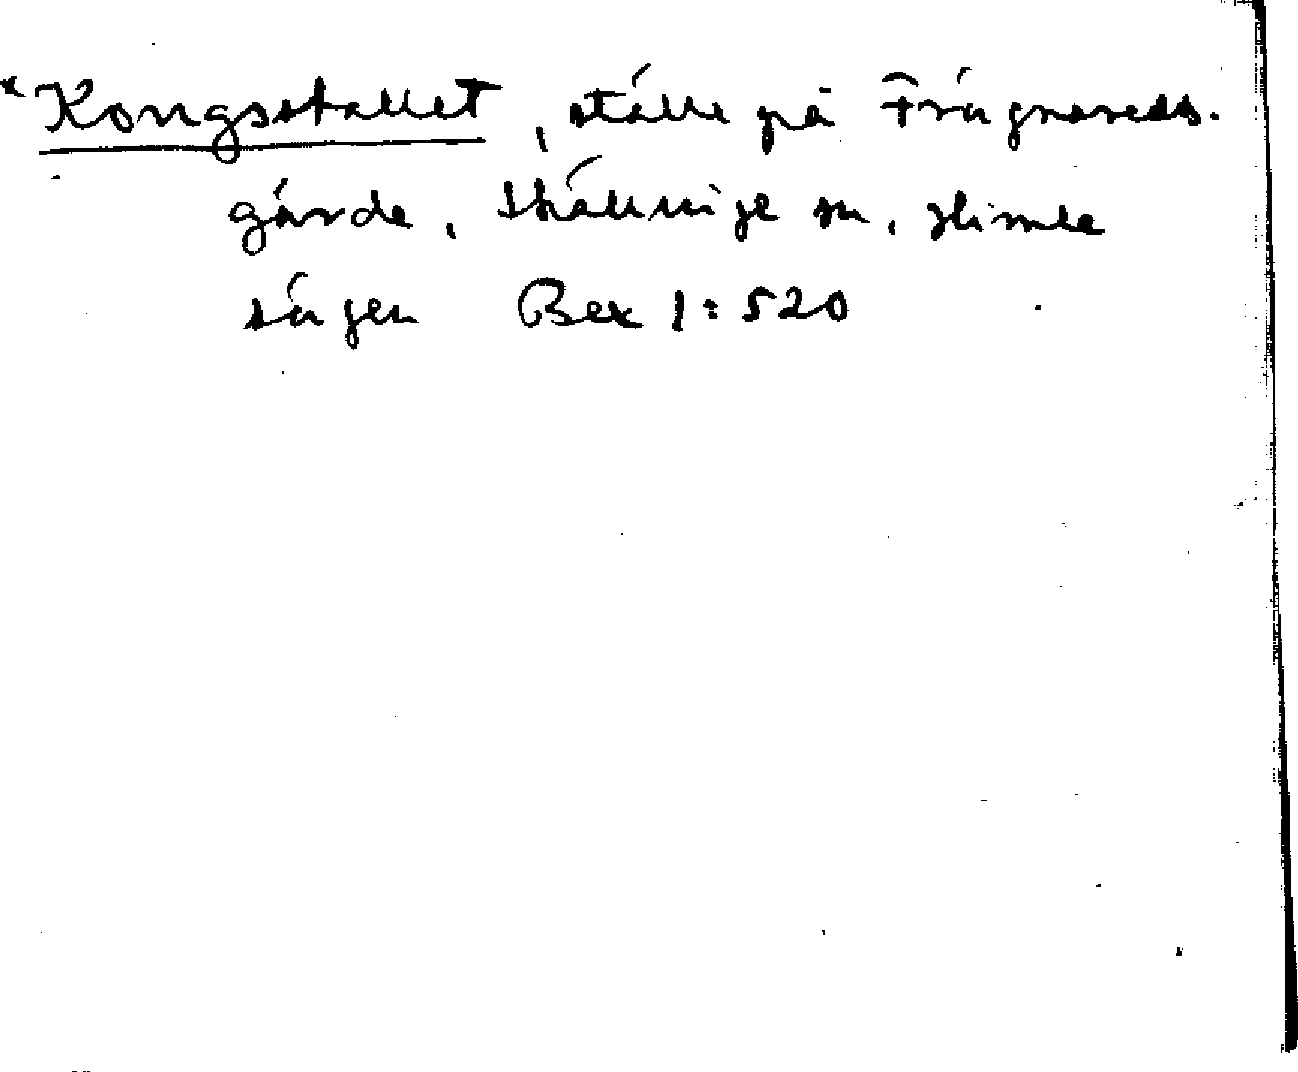 *Kongsstallet, ställe på Frägnareds.
gärde, Skällinge sn, Himle
sägen Bex 1:520